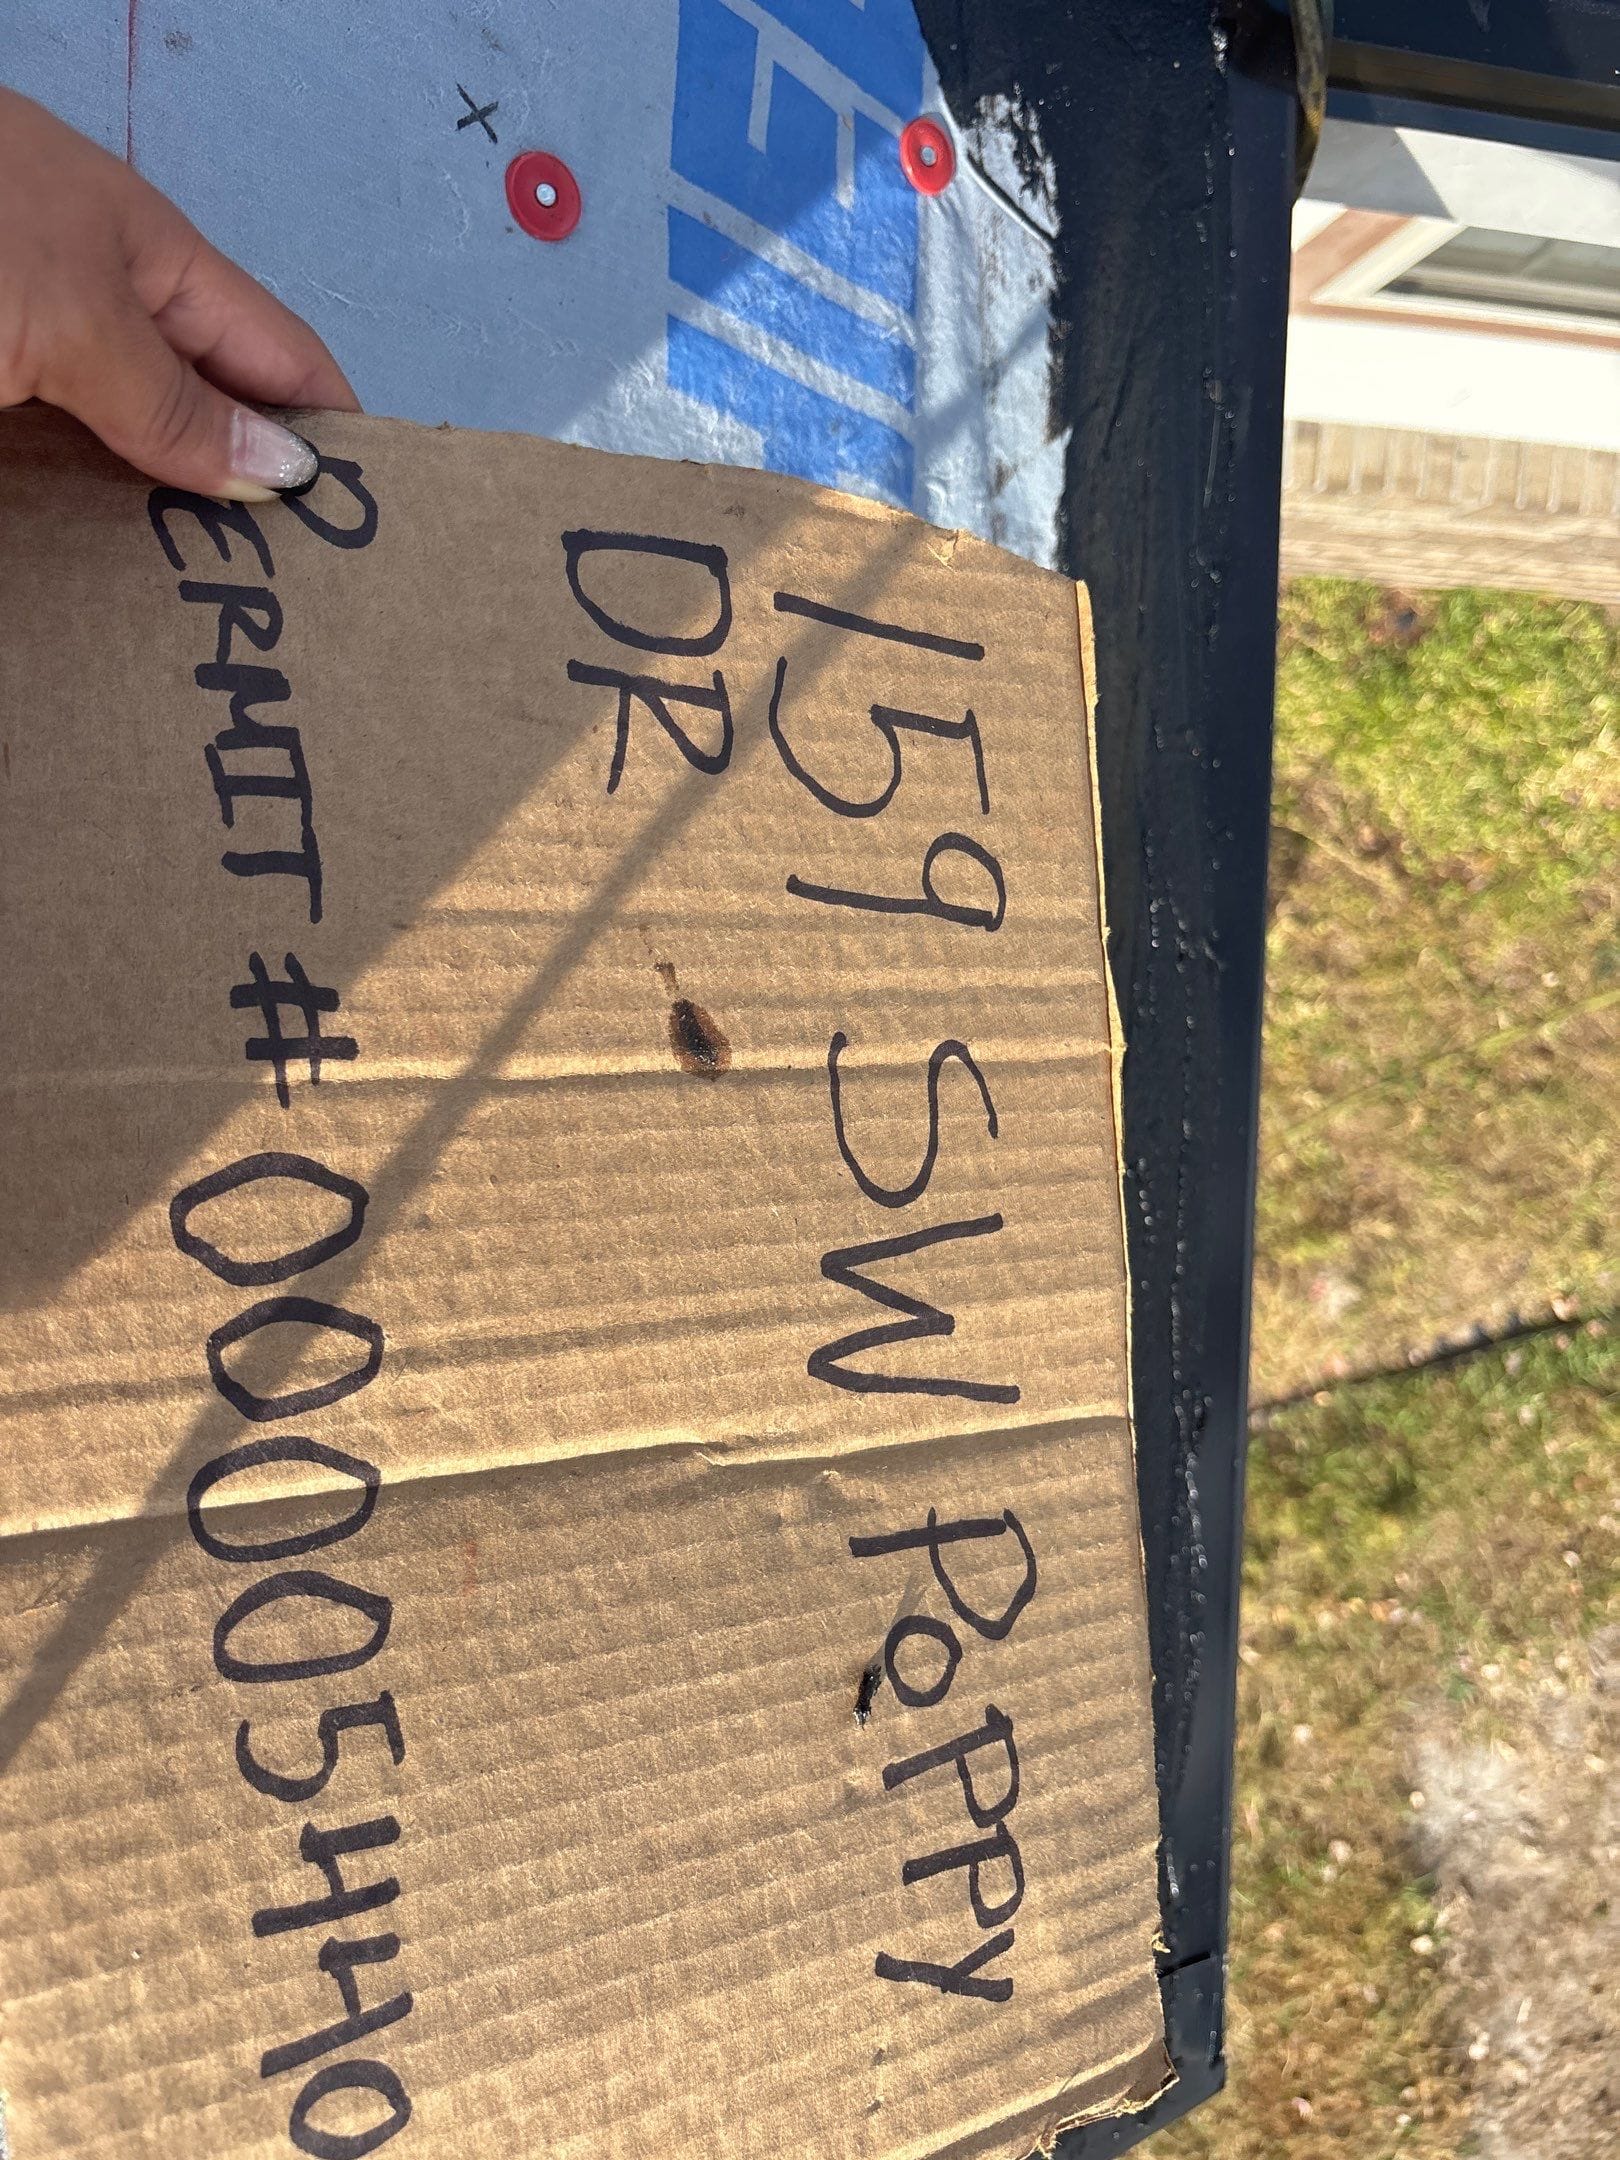 159 SW PoPPY
DR
PERMIT # 00005440